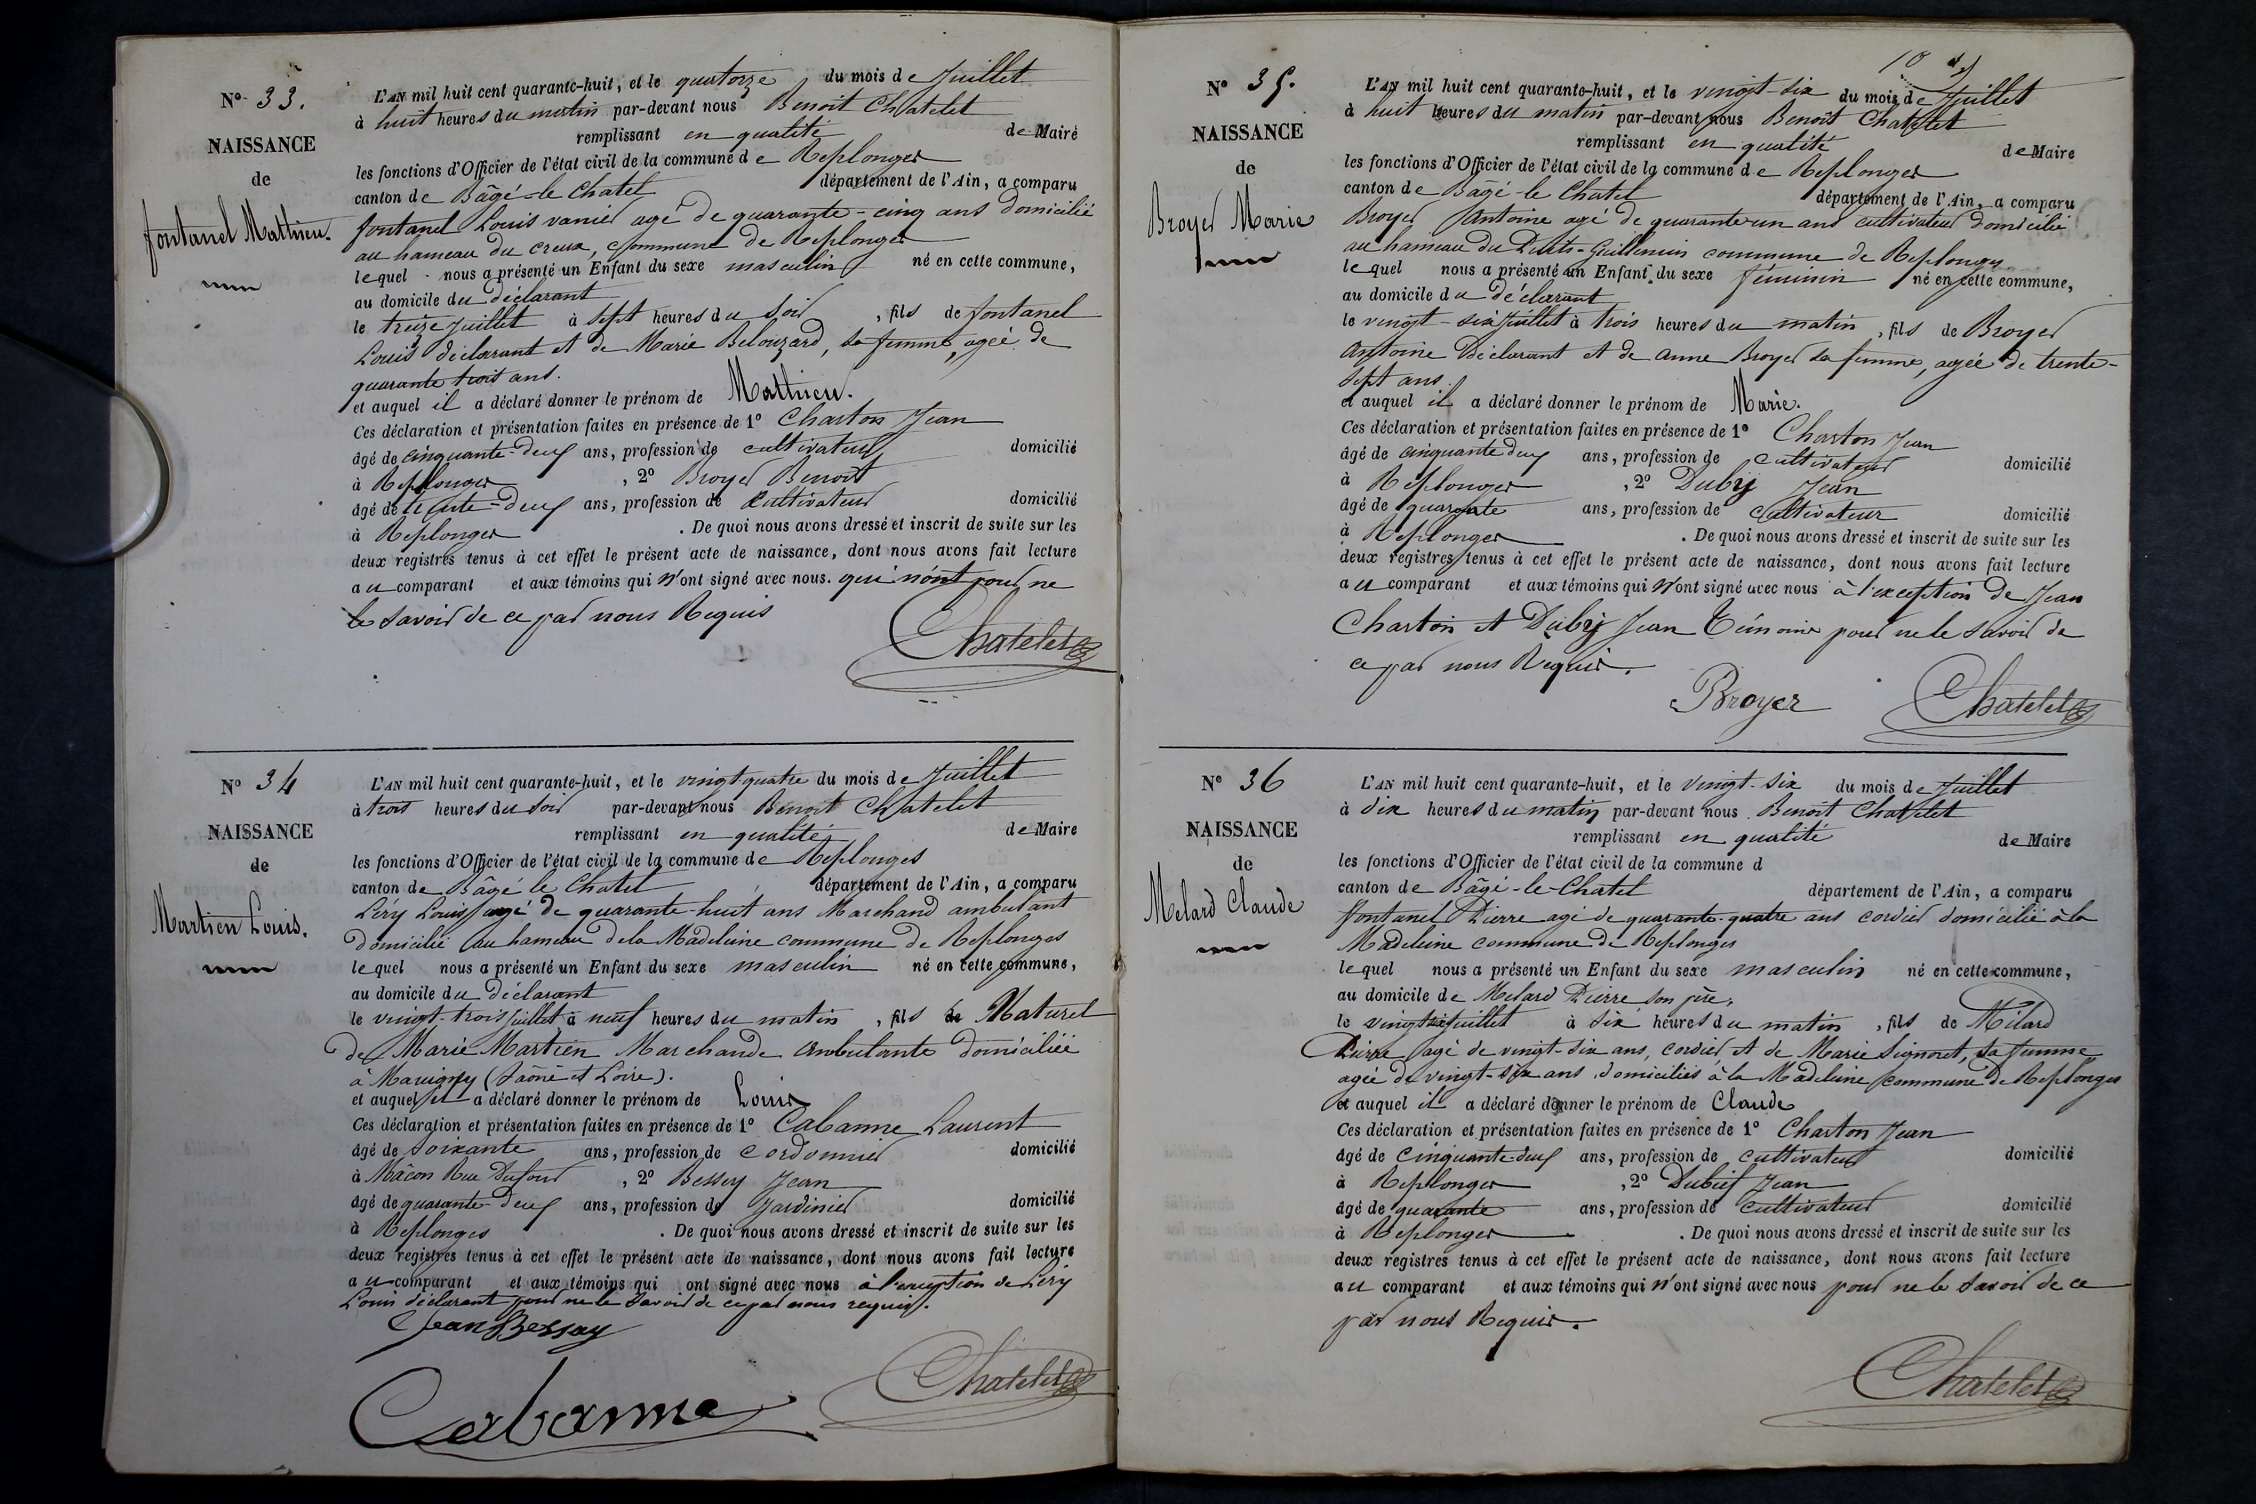 N° 33.
NAISSANCE
de
fontanel Mathieu.
L'AN mil huit cent quarante-huit, et le quatorze du mois de Juillet
à huit heures du matin par-devant nous Benoit Chatelet
remplissant en qualité de Maire
les fonctions d'Officier de l'état civil de la commune de Replonges
canton de Bâgé-le Chatel département de l'Ain, a comparu
fontanel Louis vanier agé de quarante-cinq ans domicilié
au hameau du creux, commune de Replonges
lequel nous a présenté un Enfant du sexe masculin né en cette commune,
au domicile du déclarant
le treize Juillet à sept heures du soir, fils de fontanel
Louis déclarant et de Marie Belouzard, sa femme, agée de
quarante trois ans.
et auquel il a déclaré donner le prénom de Mathieu.
Ces déclaration et présentation faites en présence de 1° Charton Jean
âgé de cinquante-deux ans, profession de cultivateur domicilié
à Replonges, 2° Broyer Benoit
âgé de trente-deux ans, profession de cultivateur domicilié
à Replonges. De quoi nous avons dressé et inscrit de suite sur les
deux registres tenus à cet effet le présent acte de naissance, dont nous avons fait lecture
au comparant et aux témoins qui n'ont signé avec nous. qui n'ont pour ne
le savoir de ce par nous Requis
Chatelet
N° 34
NAISSANCE
de
Martien Louis.
L'AN mil huit cent quarante-huit, et le vingt quatre du mois de Juillet
à trois heures du soir par-devant nous Benoit Chatelet
remplissant en qualité de Maire
les fonctions d'Officier de l'état civil de la commune de Replonges
canton de Bâgé le Chatel département de l'Ain, a comparu
Léry Louis agé de quarante-huit ans Marchand ambulant
domicilié au hameau de la Madeleine commune de Replonges
lequel nous a présenté un Enfant du sexe masculin né en cette commune,
au domicile du déclarant
le vingt-trois Juillet à neuf heures du matin, fils de Naturel
de Marie Martien Marchande ambulante domiciliée
à (Saône et Loire).
et auquel il a déclaré donner le prénom de Louis
Ces déclaration et présentation faites en présence de 1° Cabanne Laurent
âgé de soixante ans, profession de cordonnier domicilié
à Mâcon Rue Dufour, 2° Bessey Jean
âgé de quarante-deux ans, profession de Jardinier domicilié
à Replonges. De quoi nous avons dressé et inscrit de suite sur les
deux registres tenus à cet effet le présent acte de naissance, dont nous avons fait lecture
au comparant et aux témoins qui ont signé avec nous à l'exception de Léry
Louis déclarant pour ne le savoir de ce par nous requis.
Jean Bessay
Cabanne
Chatelet
10
N° 35.
NAISSANCE
de
Broyer Marie
L'AN mil huit cent quarante-huit, et le vingt-six du mois de Juillet
à huit heures du matin par-devant nous Benoit Chatelet
remplissant en qualité de Maire
les fonctions d'Officier de l'état civil de la commune de Replonges
canton de Bâgé-le Chatel département de l'Ain, a comparu
Broyer Antoine agé de quarante-un ans cultivateur domicilié
au hameau du Puits-Guillemin commune de Replonges
lequel nous a présenté un Enfant du sexe féminin né en cette commune,
au domicile du déclarant
le vingt-six Juillet à trois heures du matin, fils de Broyer
Antoine Déclarant et de Anne Broyer sa femme, agée de trente-
sept ans.
et auquel il a déclaré donner le prénom de Marie.
Ces déclaration et présentation faites en présence de 1° Charton Jean
âgé de cinquante deux ans, profession de cultivateur domicilié
à Replonges, 2° Duby Jean
âgé de quarante ans, profession de cultivateur domicilié
à Replonges. De quoi nous avons dressé et inscrit de suite sur les
deux registres tenus à cet effet le présent acte de naissance, dont nous avons fait lecture
au comparant et aux témoins qui n'ont signé avec nous à l'exception de Jean
Charton et Duby Jean Témoins pour ne le savoir de
ce par nous Requis.
Broyer
Chatelet
N° 36
NAISSANCE
de
Melard Claude
L'AN mil huit cent quarante-huit, et le vingt-six du mois de Juillet
à dix heures du matin par-devant nous Benoit Chatelet
remplissant en qualité de Maire
les fonctions d'Officier de l'état civil de la commune d
canton de Bâgé-le-Chatel département de l'Ain, a comparu
fontanel Pierre agé de quarante-quatre ans cordier domicilié à la
Madeleine commune de Replonges
lequel nous a présenté un Enfant du sexe masculin né en cette commune,
au domicile de Melard Pierre son père,
le vingt six Juillet à six heures du matin, fils de Mélard
Pierre agé de vingt-six ans, cordier, et de Marie Signoret, sa femme
agée de vingt-six ans domiciliés à la Madeleine commune de Replonges
et auquel il a déclaré donner le prénom de Claude
Ces déclaration et présentation faites en présence de 1° Charton Jean
âgé de cinquante-deux ans, profession de cultivateur domicilié
à Replonges, 2° Dubief Jean
âgé de quarante ans, profession de cultivateur domicilié
à Replonges. De quoi nous avons dressé et inscrit de suite sur les
deux registres tenus à cet effet le présent acte de naissance, dont nous avons fait lecture
au comparant et aux témoins qui n'ont signé avec nous pour ne le savoir de ce
par nous Requis.
Chatelet